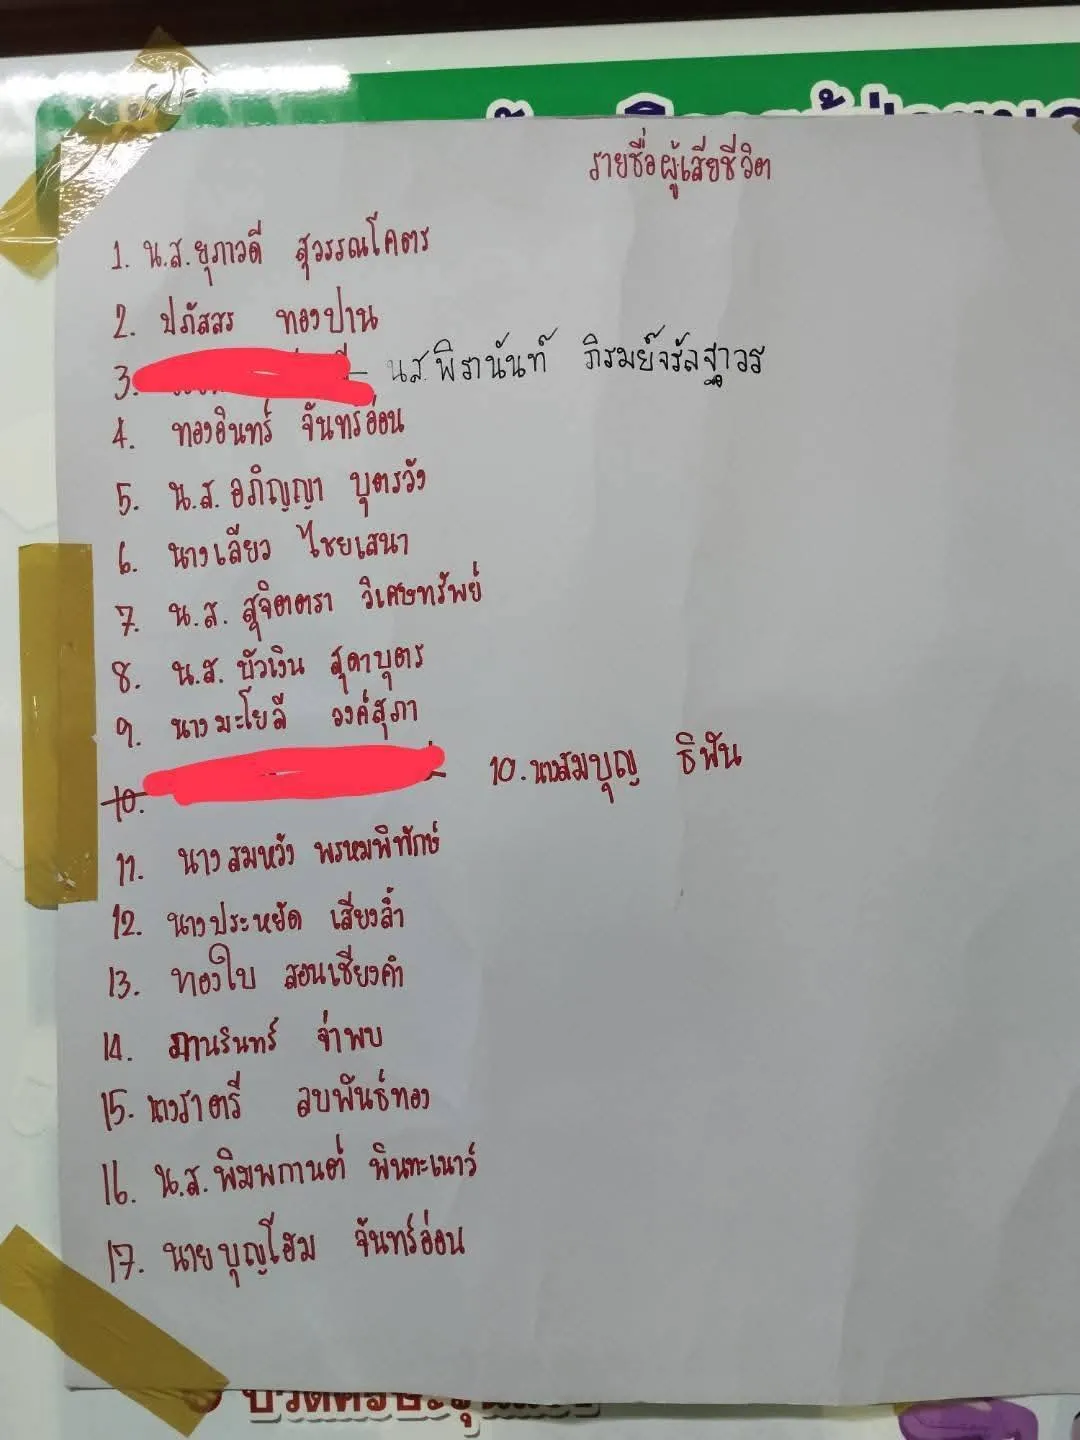 รายชื่อผู้เสียชีวิต
1. น.ส.ยุภาวดี สุวรรณโคตร
2. ปภัสสร ทองปาน
3. น.ส.พิรานันท์ ภิรมย์จรัลฐาวร
4. ทองอินทร์ จันทร์อ่อน
5. น.ส.อภิญญา บุตรวัง
6. นางเลียว ไชยเสนา
7. น.ส. สุจิตตรา วิเศษทรัพย์
8. น.ส. บัวเงิน สุดาบุตร
9. นางมะโยลี วงค์สุภา
10. 10. นางสมบุญ ธิพัน
11. นางสมหวัง พรหมพิทักษ์
12. นางประหยัด เสียงล้ำ
13. ทองใบ สอนเชียงคำ
14. ภานรินทร์ จำพบ
15. นางราตรี ลบพันธ์ทอง
16. น.ส.พิมพกานต์ พินทะเนาว์
17. นายบุญโฮม จันทร์อ่อน